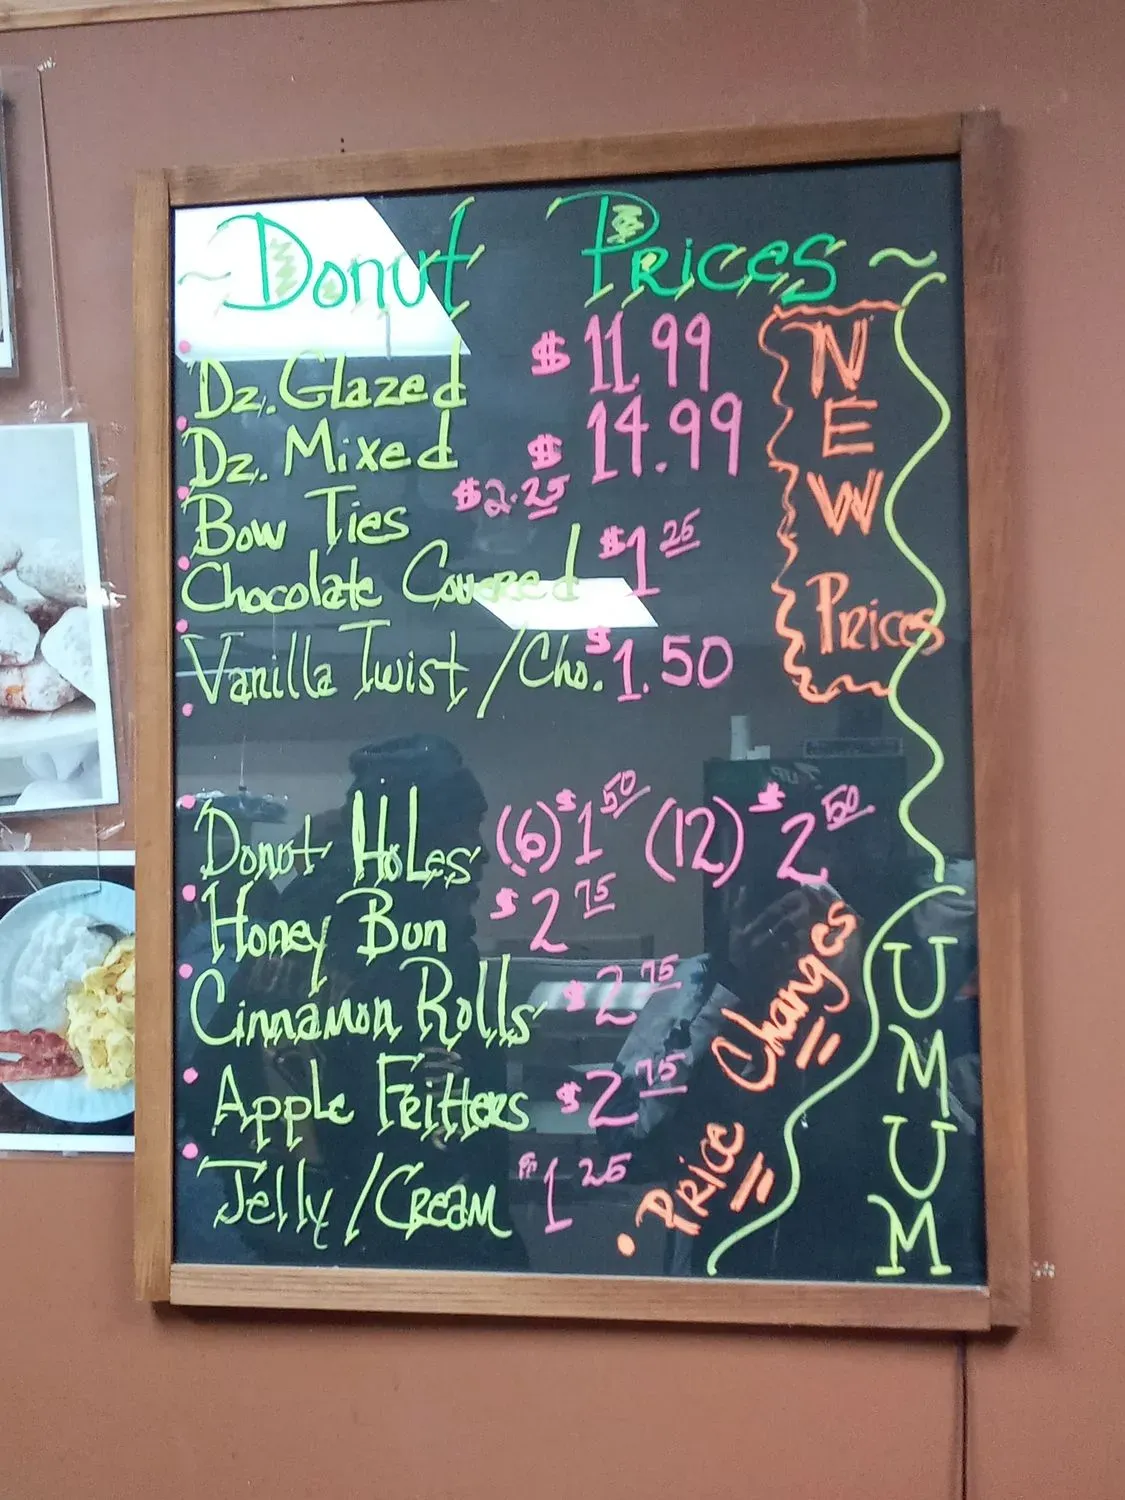 ~ Donut Prices ~
Dz. Glazed $11.99
Dz. Mixed $14.99
Bow Ties $2.25
Chocolate Covered $1 25
Vanilla Twist / Cho. $1.50
Donut Holes (6) $1 50 (12) $2 50
Honey Bun $2 75
Cinnamon Rolls $2 75
Apple Fritters $2 75
Jelly / Cream $1 25
NEW
Prices
• Price Changes
UMUM